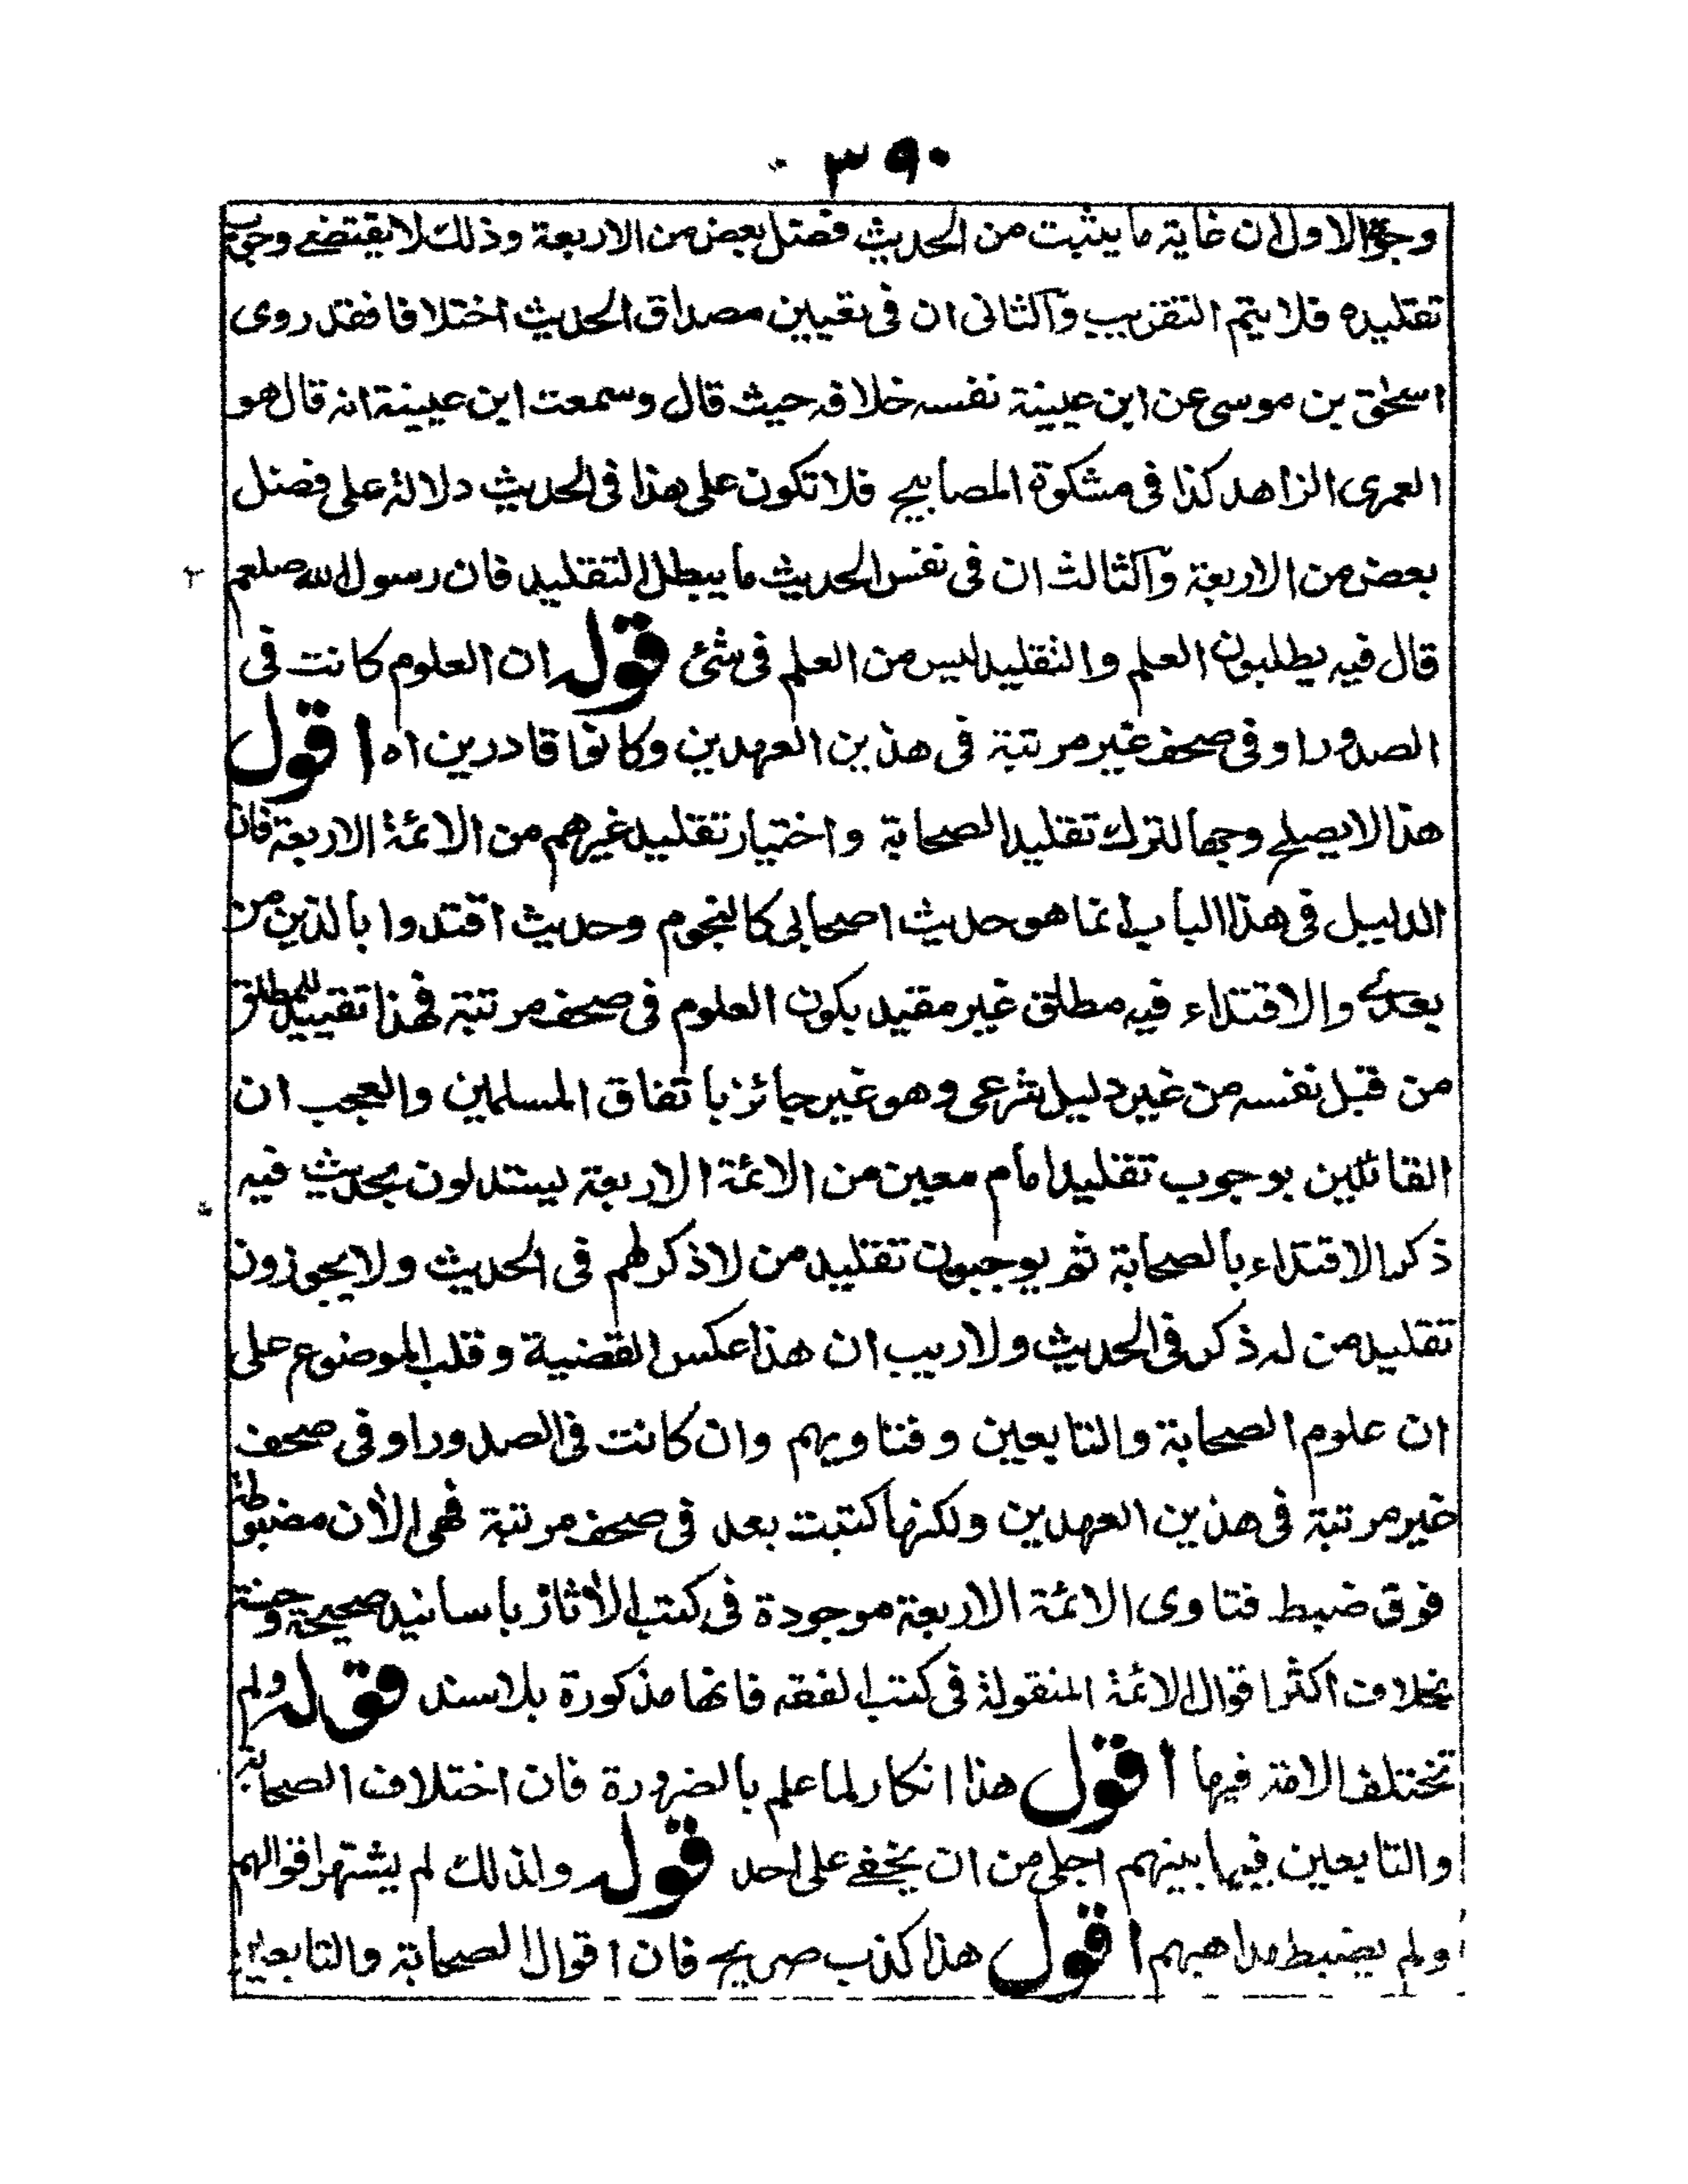 ٣٩٠
وجوه الاول ان غاية ما يثبت من الحديث فضل بعض من الاربعة وذلك لا يقتضے وجوب
تقليده فلا يتم التقريب وآلثانى ان فى تعيين مصداق الحديث اختلافا فقد روى
اسحٰق بن موسى عن ابن عيينة نفسه خلافه حيث قال وسمعت ابن عيينة انه قال هو
العمرى الزاهد كذا فى مشكوة المصابيح فلا تكون على هذا فى الحديث دلالة على فضل
بعض من الاربعة وآلثالث ان فى نفس الحديث ما يبطل التقليد فان رسول الله صلعم
قال فيه يطلبون العلم والتقليد ليس من العلم فى شئ قوله ان العلوم كانت فى
الصدور او فى صحف غير مرتبة فى هذين العهدين وكانوا قادرين اه اقول
هذا لا يصلح وجها لترك تقليد الصحابة واختيار تقليد غيرهم من الائمة الاربعة فان
الدليل فى هذا الباب انما هو حديث اصحابى كالنجوم وحديث اقتدوا بالذين من
بعدے والاقتداء فيه مطلق غير مقيد بكون العلوم فى صحف مرتبة فهذا تقييد للمطلق
من قبل نفسه من غير دليل شرعى وهو غير جائز باتفاق المسلمين والعجب ان
القائلين بوجوب تقليد امام معين من الائمة الاربعة يستدلون بحديث فيه
ذكر الاقتداء بالصحابة ثم يوجبون تقليد من لا ذكر لهم فى الحديث ولا يجوزون
تقليد من له ذكر فى الحديث ولا ريب ان هذا عكس القضية وقلب الموضوع على
ان علوم الصحابة والتابعين وفتاويهم وان كانت فى الصدور او فى صحف
غير مرتبة فى هذين العهدين ولكنها كتبت بعد فى صحف مرتبة فهى الاٰن مضبوطة
فوق ضبط فتاوى الائمة الاربعة موجودة فى كتب الاٰثار باسانيد صحيحة وحسنة
بخلاف اكثر اقوال الائمة المنقولة فى كتب الفقه فانها مذكورة بلا سند قوله ولم
تختلف الامة فيها اقول هذا انكار لما علم بالضرورة فان اختلاف الصحابة
والتابعين فيما بينهم اجلى من ان يخفے على احد قوله ولذلك لم يشتهر اقوالهم
ولم يضبط مذاهبهم اقول هذا كذب صريح فان اقوال الصحابة والتابعين